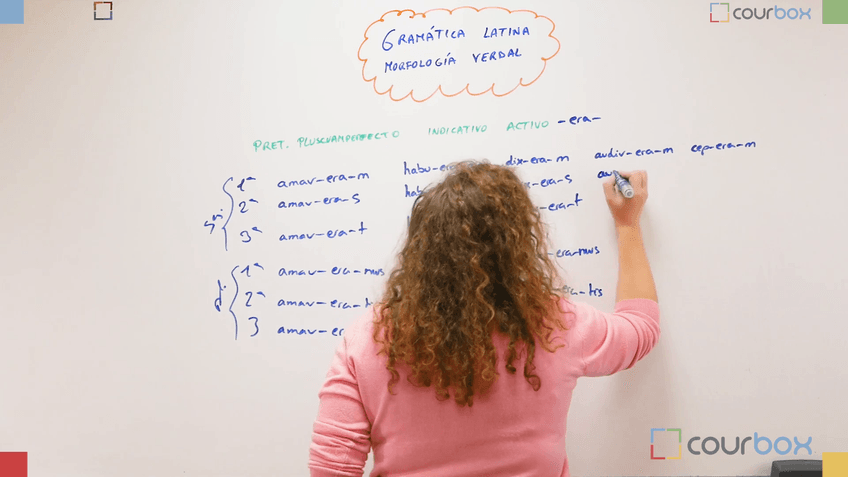 courbox
GRAMÁTICA LATINA
MORFOLOGÍA VERDAL
PRET. PLUSCUAMPERFECTO INDICATIVO ACTIVO -era-
1ª amav-era-m habu-era-m dix-era-m audiv-era-m cep-era-m
2ª amav-era-s -era-s au
3ª amav-era-t -era-t
1ª amav-era-mus -era-mus
2ª amav-era-tis -era-tis
3 amav-er
courbox